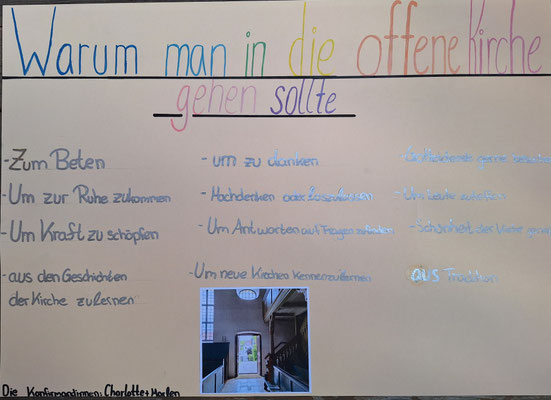 Warum man in die offene Kirche
gehen sollte
-Zum Beten
-Um zur Ruhe zukommen
-Um Kraft zu schöpfen
-aus den Geschichten
der Kirche zulernen
- um zu danken
- Nachdenken oder
-Um Antworten auf Fragen zufinden
-Um neue Kirchen kennenzulernen
-Um Leute
-Schönheit der Kirche
aus Tradition
Die Konfirmandinnen: Charlotte+Marlen